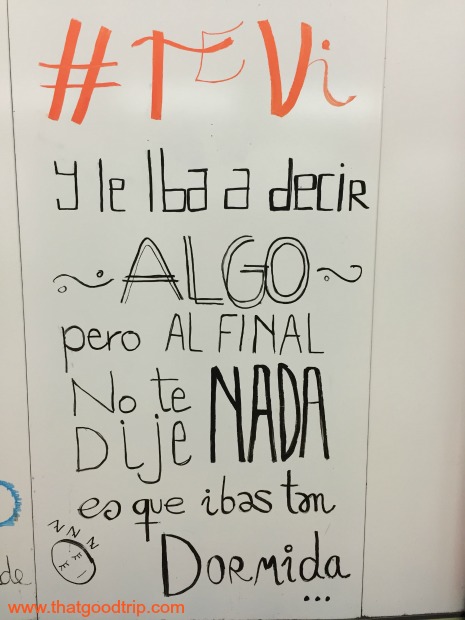 #TEVi
y le Iba a decir
ALGO
pero AL FINAL
No te
Dije NADA
es que ibas tan
Dormida
...
zzz
de
www.thatgoodtrip.com